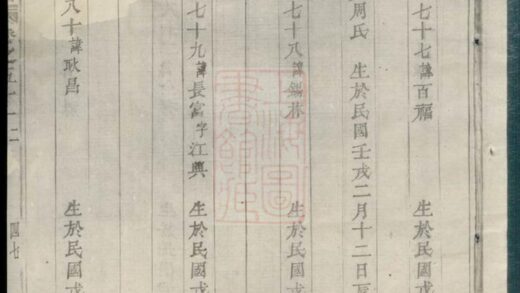 七十七諱百福 生於民國戊
周氏 生於民國壬戌二月十二日
七十八諱錫 生於民國戊
七十九諱長富字江興 生於民國戊
八十諱耿昌 生於民國戊
四七